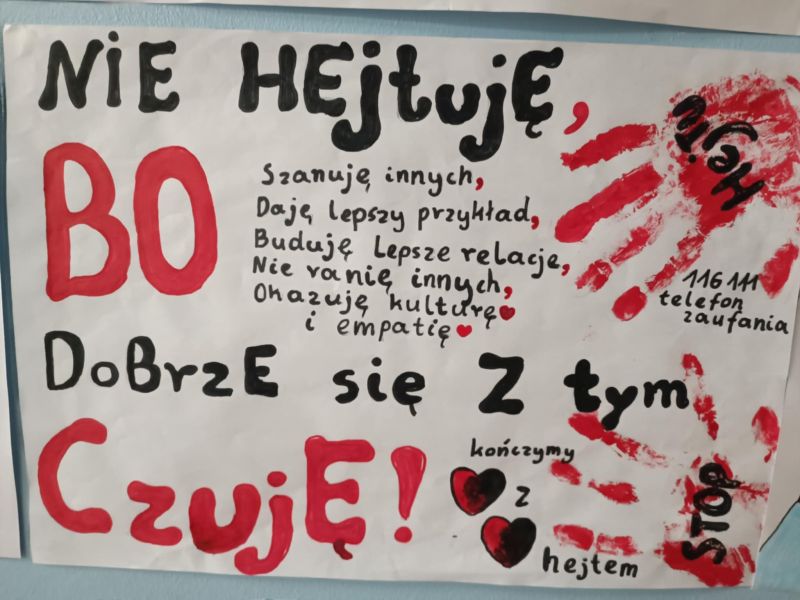 NiE HEjtuJĘ,
BO
Szanuję innych,
Daję lepszy przykład,
Buduję Lepsze relacje,
Nie ranię innych,
Okazuję kulturę
i empatię
DoBrzE się Z tym
CzujĘ!
Hejtu
116 111
telefon
zaufania
kończymy
z
hejtem
STOP